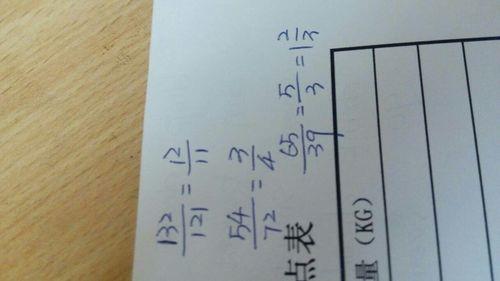 132/121 = 12/11
54/72 = 3/4
65/39 = 5/3 = 1 2/3
点表
量(KG)